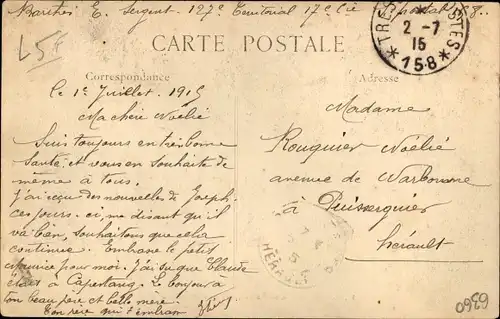 Barthès E. Sergent 127e Territorial 17e Cie postal 158..
L5F
TRESOR ET POSTES
2-7
15
* 158 *
CARTE POSTALE
Correspondance
Adresse
Le 1er Juillet 1915
Ma chère Noélie
Suis toujours en très bonne
santé et vous en souhaite de
même à tous.
J'ai reçu des nouvelles de Joseph
ces jours-ci, me disant qu'il
va bien, souhaitons que cela
continue. Embrasse le petit
Maurice pour moi. J'ai su que Claude
était à Capestang. Le bonjour à
ton beau père et belle mère.
Ton père qui t'embrasse
Madame
Rouquier Noélie
avenue de Narbonne
à Puisserguier
Hérault
HERAULT
6360